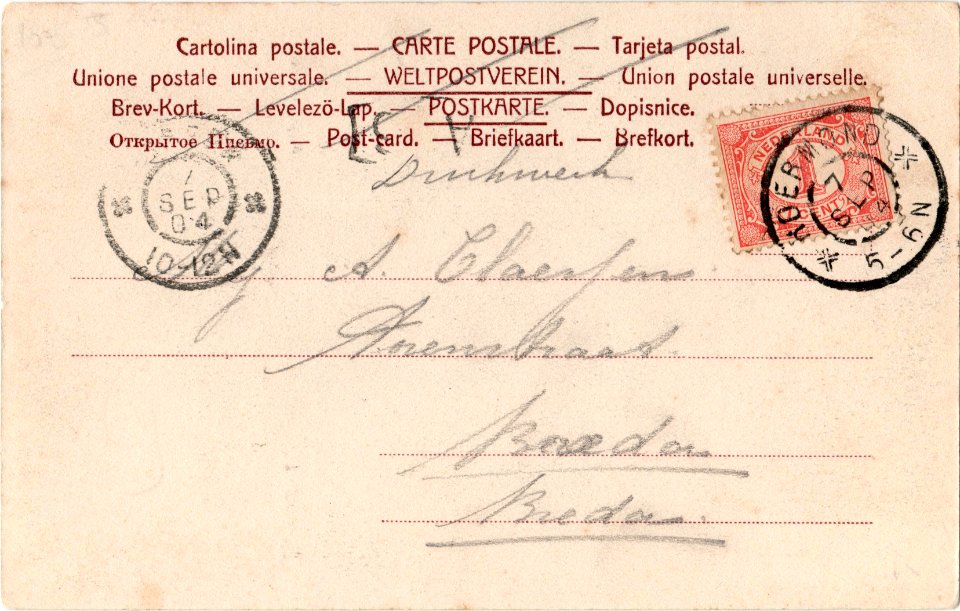 Cartolina postale. — CARTE POSTALE. — Tarjeta postal.
Unione postale universale. — WELTPOSTVEREIN. — Union postale universelle.
Brev-Kort. — Levelezö-Lap. — POSTKARTE. — Dopisnice.
Открытое Письмо. — Post-card. — Briefkaart. — Brefkort.
Drukwerk
NEDERLAND
1
CENT
ROERMOND
7 SEP 04
5-6N
7
SEP
04
10-12N
A. Claessens
Breda
Breda